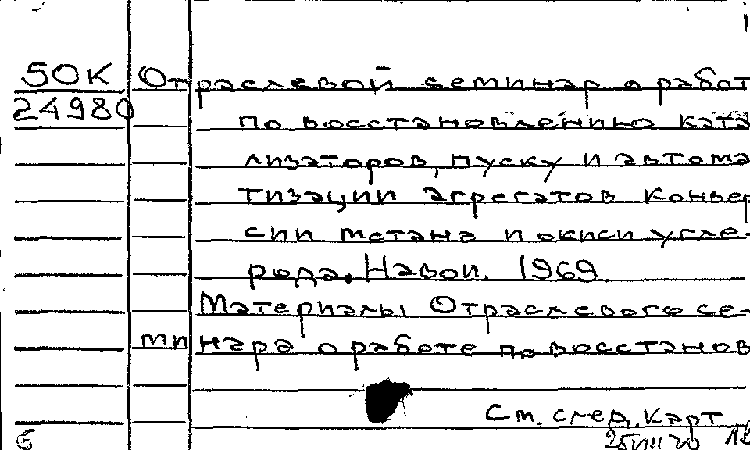 50К Отраслевой семинар о работ
24980
по восстановлению ката
лизаторов, пуску и автома
тизации агрегатов конвер
сии метана и окиси угле-
рода. Навои. 1969.
Материалы Отраслевого се-
минара о работе по восстанов
См. след. карт
6